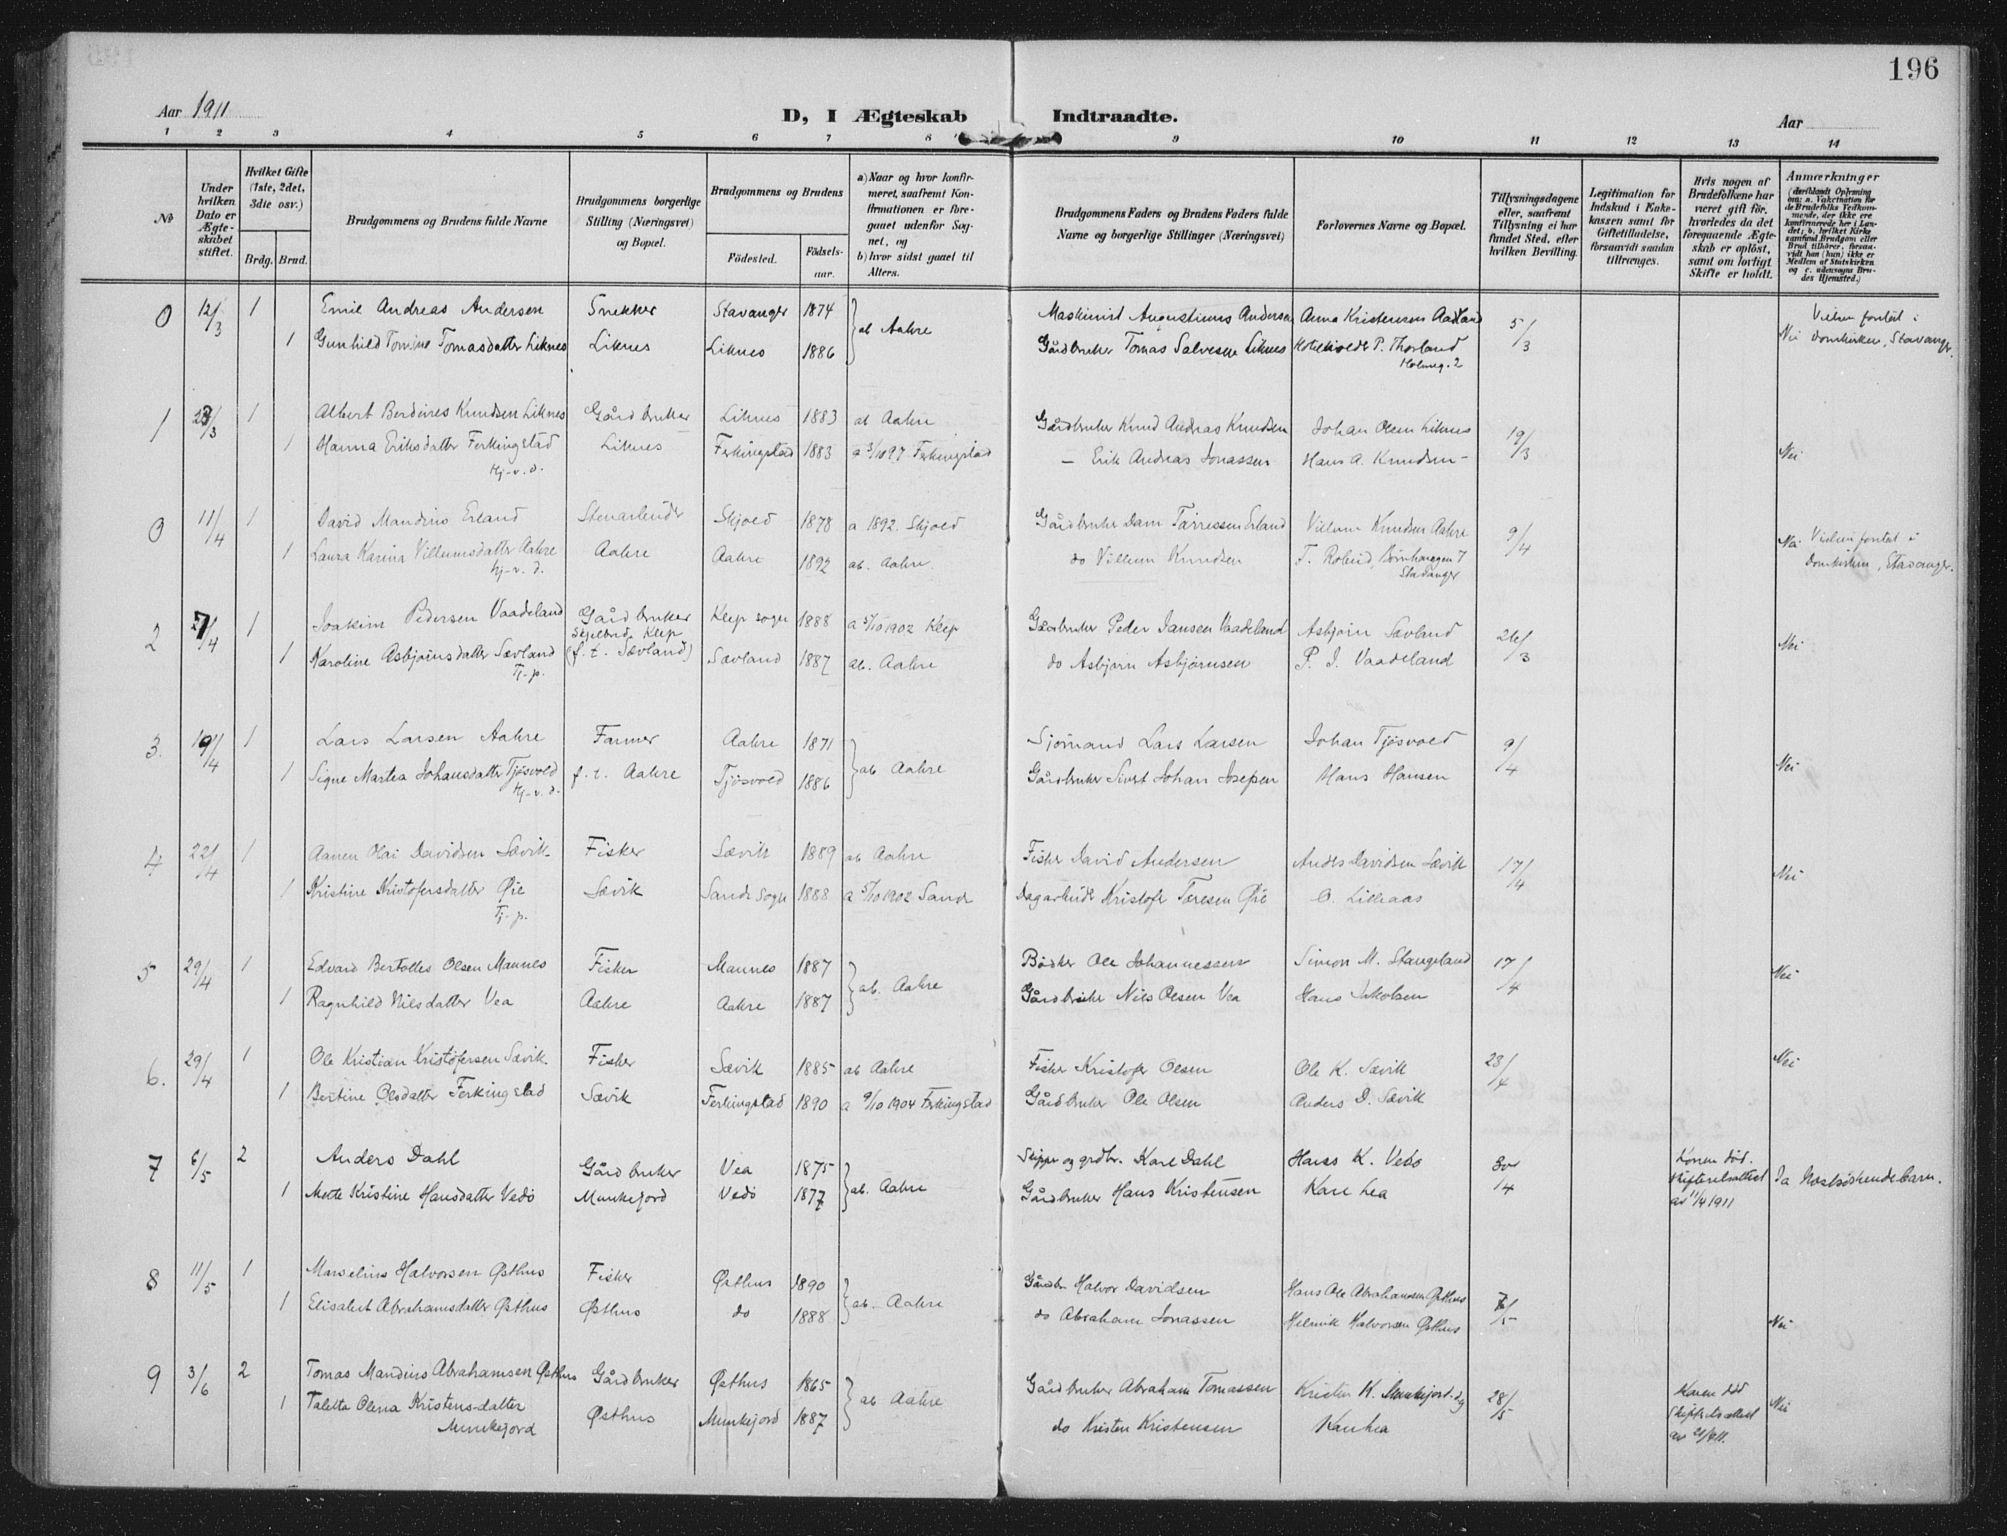 196
Aar 1911
D, I Ægteskab Indtraadte.
Aar
1 2 3 4 5 6 7 8 9 10 11 12 13 14
№
Under hvilken Dato er Ægteskabet stiftet.
Hvilket Gifte (1ste, 2det, 3die osv.)
Brdg. Brud.
Brudgommens og Brudens fulde Navne
Brudgommens borgerlige Stilling (Næringsvei) og Bopæl.
Brudgommens og Brudens
Fødested. Fødselsaar.
a) Naar og hvor konfirmeret, saafremt Konfirmationen er foregaaet udenfor Sognet, og
b) hvor sidst gaaet til Alters.
Brudgommens Faders og Brudens Faders fulde Navne og borgerlige Stillinger (Næringsvei)
Forlovernes Navne og Bopæl.
Tillysningsdagene eller, saafremt Tillysning ei har fundet Sted, efter hvilken Bevilling.
Legitimation for Indskud i Enkekassen samt for Giftetilladelse, forsaavidt saadan tiltrænges.
Hvis nogen af Brudefolkene har været gift før, hvorledes da det foregaaende Ægteskab er opløst, samt om lovligt Skifte er holdt.
Anmærkninger
0 12/3 1 Emil Andreas Andersen Snekker Stavanger 1874 ab Aahre Maskinist Augustinus Andersen Anna Kristensen Aadland 5/3 Nei Vielsen foretat i
1 Gunhild Tomine Tomasdatter Liknes Liknes Liknes 1886 Gårdbruker Tomas Salvesen Liknes P. Thorland Domkirken, Stavanger.
Holmeg. 2
1 23/3 1 Albert Berdines Knudsen Liknes Gårdbruker Liknes 1883 ab Aahre Gårdbruker Knud Andreas Knudsen Johan Olsen Liknes 19/3 Nei
1 Hanna Eriksdatter Ferkingstad Liknes Ferkingstad 1883 a 3/10 97 Ferkingstad — Erik Andreas Jonassen Hans A. Knudsen -
Hj-v. d.
0 11/4 1 David Mandius Erland Stenarbeider Skjold 1878 a 1892. Skjold Gårdbruker Erland Villum Knudsen Aahre 9/4 Nei Vielsen foretat i
1 Laura Karina Villumsdatter Aahre Aahre Aahre 1892 ab. Aahre. do Villum Knudsen Domkirken, Stavanger.
Hj-v. d. Stavanger
2 7/4 1 Joakim Pedersen Vaadeland Gårdbruker Klep sogn 1888 a 5/10 1902 Klep Gårdbruker Peder Jansen Vaadeland Asbjørn Sævland 26/3 Nei
1 Karoline Asbjørnsdatter Sævland (f. t. Sævland) Sævland 1887 ab. Aahre do Asbjørn Asbjørnsen P. J. Vaadeland
Tj-p.
3. 19/4 1 Lars Larsen Aahre Farmer Aahre 1871 ab Aahre Sjømand Lars Larsen Johan Tjøsvold 9/4 Nei
1 Signe Martea Johansdatter Tjøsvold f. t. Aahre Tjøsvold 1886 Gårdbruker Sivert Johan Josepsen Hans Hansen
Hj-v. d.
4. 22/4 1 Aanen Olai Davidsen Sævik Fisker Sævik 1889 ab Aahre Fisker David Andersen Anders Davidsen Sævik 17/4 Nei
1 Kristine Kristofersdatter Øie Sævik Sands sogn 1888 a 5/10 1902 Sand Dagarbeider Kristofer Teresen Øie O. Lillaas
Tj-p.
5 29/4 1 Edvard Bertolles Olsen Mannes Fisker Mannes 1887 ab. Aahre Bødker Ole Johannessen Simon M. Stangeland 17/4 Nei
1 Ragnhild Nilsdatter Vea Aahre Aahre 1887 Gårdbruker Nils Olsen Vea Hans Jakobsen
6. 29/4 1 Ole Kristian Kristofersen Sævik. Fisker Sævik 1885 ab Aahre Fisker Kristofer Olsen Ole K. Sævik 23/4 Nei
1 Bertine Olsdatter Ferkingstad Sævik Ferkingstad 1890 a 9/10 1904 Ferkingstad Gårdbruker Ole Olsen Anders D. Sævik
7 6/5 2 Anders Dahl Gårdbruker Vea 1875 ab. Aahre Skipper og grdbr. Karl Dahl Hans K. Vedø 30/4 Konen død. Ja Næstsøskendebarn.
1 Mette Kristine Hansdatter Vedø Munkejord Vedø 1877 Gårdbruker Hans Kristensen Skifteretsattest
av 11/4 1911
8 11/5 1 Marselius Halvorsen Østhus Fisker Østhus 1890 ab. Aahre Gårdbr Halvor Davidsen Hans Ole Abrahamsen Østhus 7/5 Nei
1 Elisabet Abrahamsdatter Østhus Østhus do 1888 do Abraham Jonassen Helmik Halvorsen Østhus
9 3/6 2 Tomas Mandius Abrahamsen Østhus Gårdbruker Østhus 1865 ab Aahre Gårdbruker Abraham Tomassen Kristen K. Munkejord 28/5 Konen død Nei
1 Taletta Olena Kristensdatter Østhus Munkejord 1887 do Kristen Kristensen Skifteretsattest
Munkejord